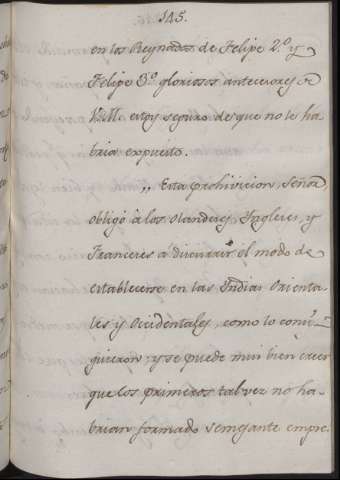 145.
en los Reynados de Felipe 2.º y
Felipe 3.º gloriosos antecesores de
V.M. estoy seguro de que no le ha-
bria expuesto.
„ Esta prohivicion, Señor,
obligó à los Olandeses, Yngleses, y
Franceses a discurrir el modo de
establecerse en las Indias Orienta-
les y Occidentales, como lo consi-
guieron; y se puede mui bien creer
que los primeros tal vez no ha-
brian formado semejante empre-